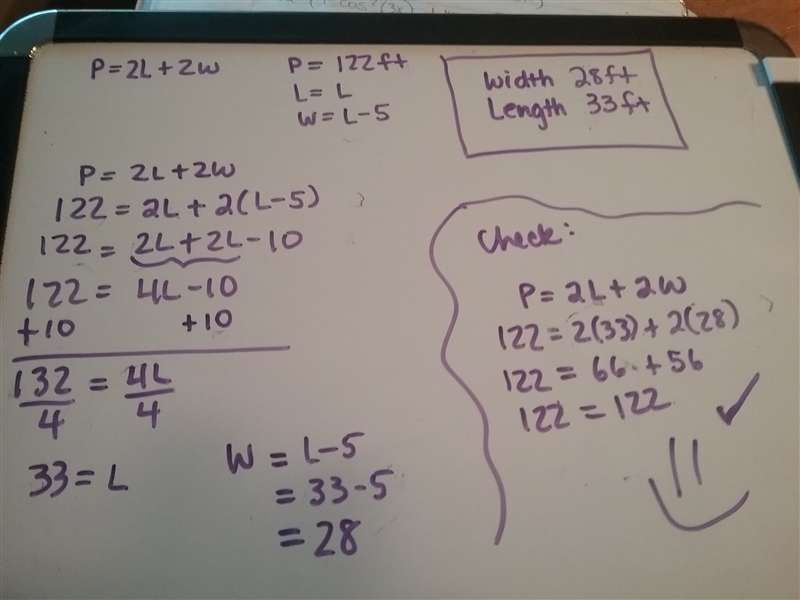 P=2L+2W
P= 122ft
L= L
W= L-5
Width 28ft
Length 33ft
P= 2L+2W
122=2L+2(L-5)
122= 2L+2L-10
122= 4L-10
+10 +10
132/4 = 4L/4
33=L
W = L-5
= 33-5
= 28
Check:
P=2L+2W
122=2(33)+2(28)
122= 66+56
122=122 ✓